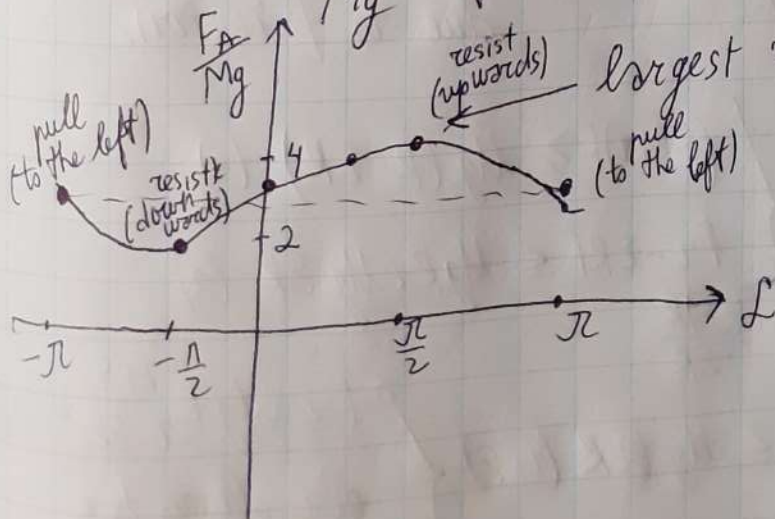 Mg
F_A
Mg
resist
(upwards)
largest
pull
(to the left)
resist
(down
wards)
4
pull
(to the left)
2
-π
-π/2
π/2
π
α